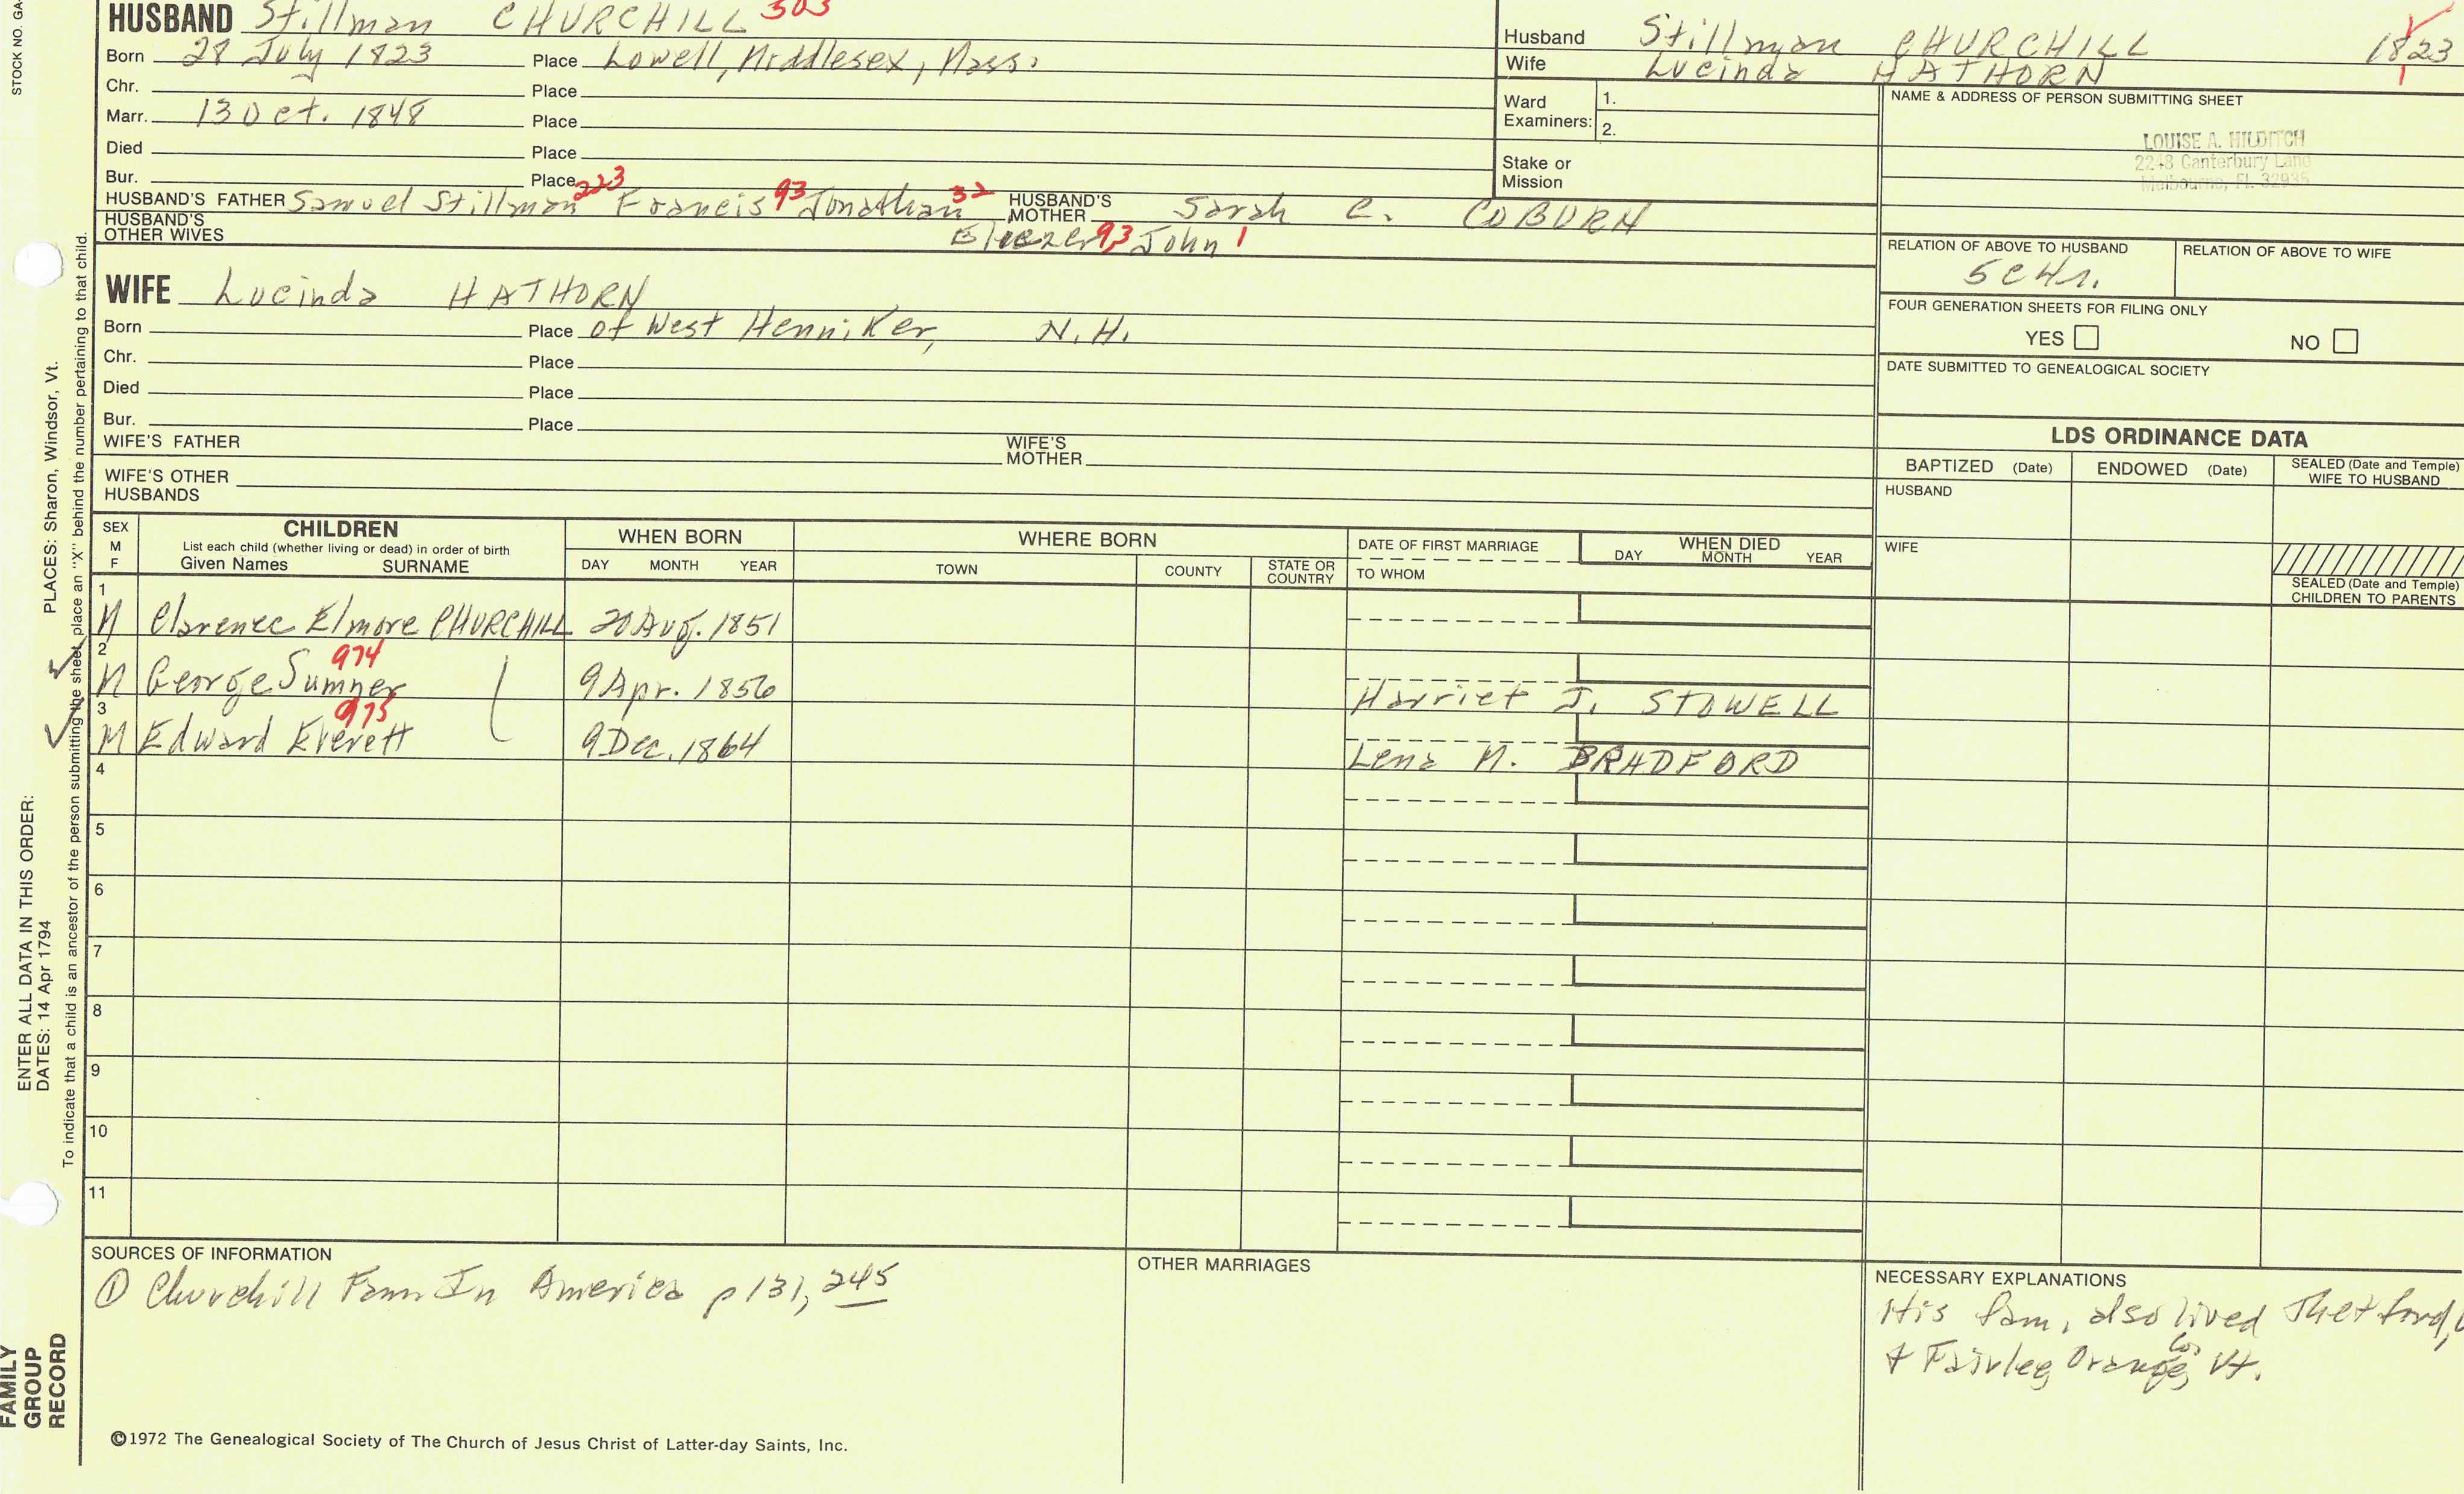 STOCK NO. GA-
HUSBAND Stillman CHURCHILL 503
Born 28 July 1823 Place Lowell, Middlesex, Mass.
Chr. Place
Marr. 13 Oct. 1848 Place
Died Place
Bur. Place
HUSBAND'S FATHER Samuel Stillman 223 Francis 93 Jonathan 32 HUSBAND'S MOTHER Sarah C. COBURN
HUSBAND'S OTHER WIVES Eliezer 93 John 1
WIFE Lucinda HATHORN
Born Place of West Henniker, N.H.
Chr. Place
Died Place
Bur. Place
WIFE'S FATHER WIFE'S MOTHER
WIFE'S OTHER HUSBANDS
Husband Stillman CHURCHILL 1823
Wife Lucinda HATHORN 1
Ward Examiners: 1.
2.
Stake or Mission
NAME & ADDRESS OF PERSON SUBMITTING SHEET
LOUISE A. HILDITCH
2248 Canterbury Lane
Melbourne, FL 32935
RELATION OF ABOVE TO HUSBAND RELATION OF ABOVE TO WIFE
5C4r.
FOUR GENERATION SHEETS FOR FILING ONLY
YES NO
DATE SUBMITTED TO GENEALOGICAL SOCIETY
LDS ORDINANCE DATA
BAPTIZED (Date) ENDOWED (Date) SEALED (Date and Temple) WIFE TO HUSBAND
HUSBAND
WIFE
SEALED (Date and Temple) CHILDREN TO PARENTS
SEX M F CHILDREN WHEN BORN WHERE BORN DATE OF FIRST MARRIAGE WHEN DIED
List each child (whether living or dead) in order of birth
Given Names SURNAME DAY MONTH YEAR TOWN COUNTY STATE OR COUNTRY TO WHOM DAY MONTH YEAR
1 M Clarence Elmore CHURCHILL 20 Aug. 1851
2 M George Sumner 974 9 Apr. 1856 Harriet J. STOWELL
3 M Edward Everett 975 9 Dec. 1864 Lena M. BRADFORD
4
5
6
7
8
9
10
11
SOURCES OF INFORMATION
① Churchill Fam. In America p 131, 245
OTHER MARRIAGES
NECESSARY EXPLANATIONS
His fam. also lived Thetford,
& Fairlee, Orange Co, Vt.
©1972 The Genealogical Society of The Church of Jesus Christ of Latter-day Saints, Inc.
FAMILY GROUP RECORD
ENTER ALL DATA IN THIS ORDER:
DATES: 14 Apr 1794
PLACES: Sharon, Windsor, Vt.
To indicate that a child is an ancestor of the person submitting the sheet, place an "X" behind the number pertaining to that child.